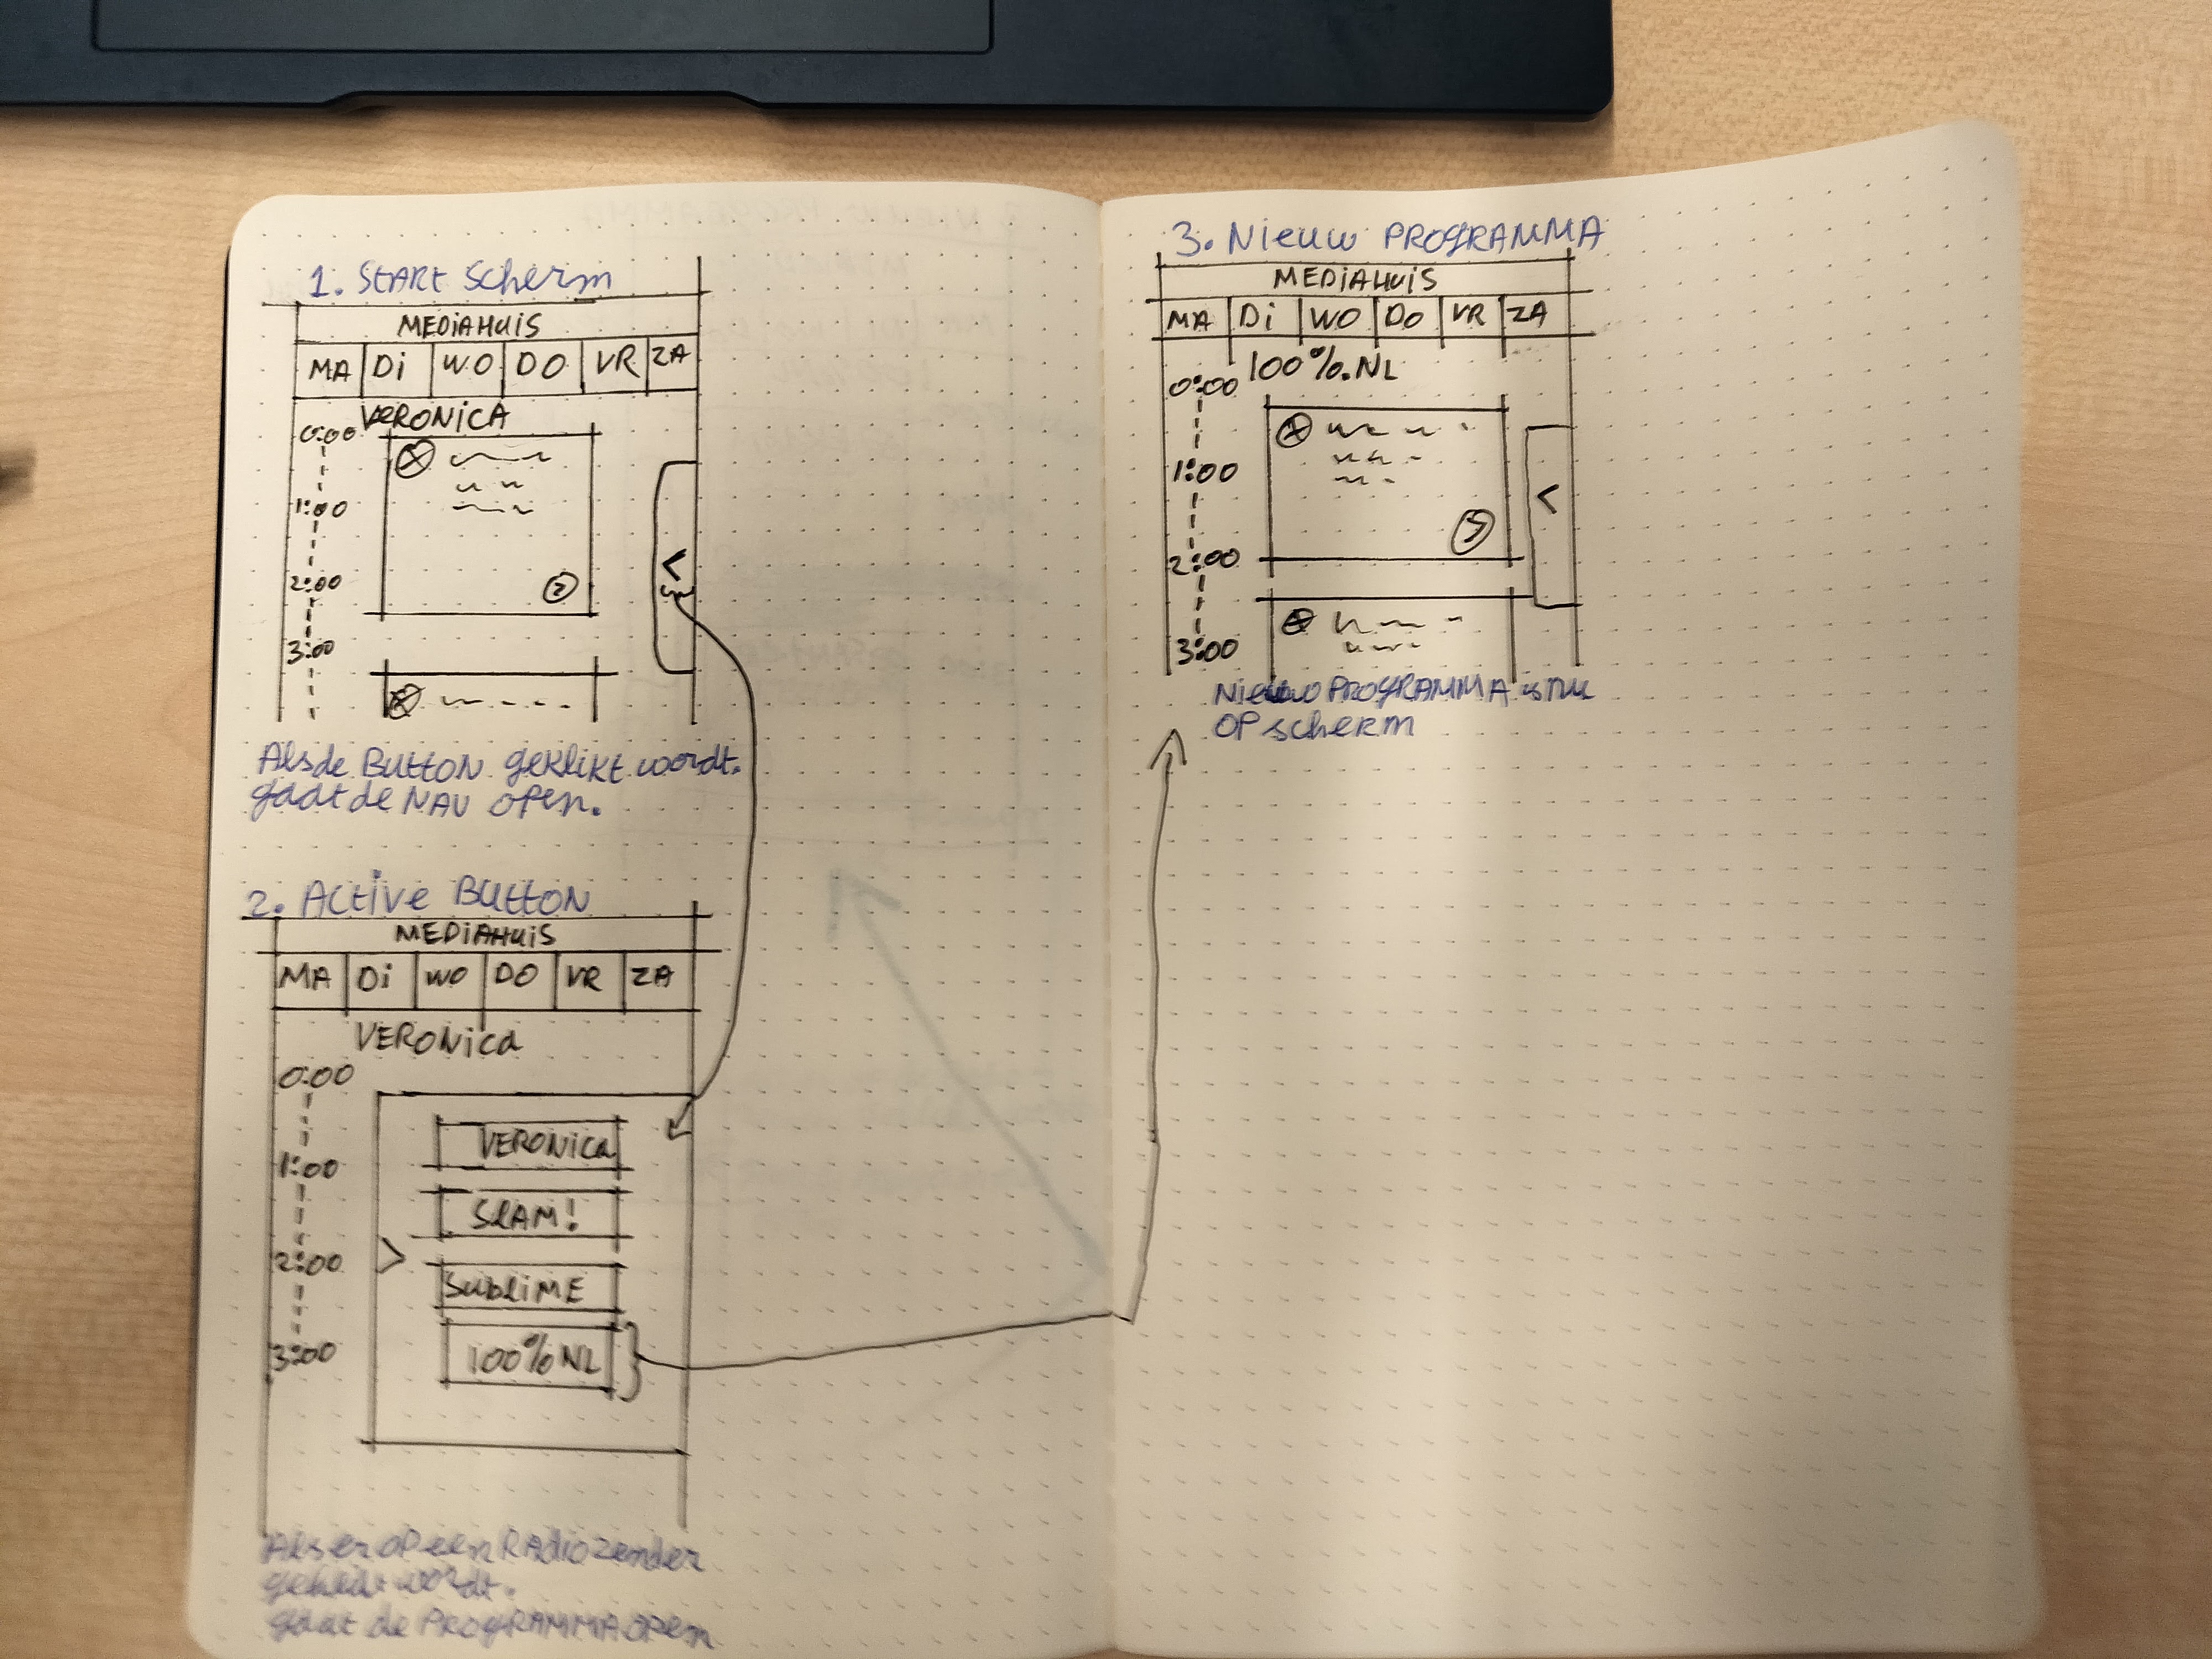 1. START Scherm
MEDIAHUIS
MA Di WO DO VR ZA
VERONICA
0:00
1:00
2:00
3:00
<
2
Als de Button geklikt wordt.
gaat de NAV open.
2. Active Button
MEDIAHUIS
MA Di WO DO VR ZA
VERONICA
0:00
1:00
2:00
3:00
VERONICA
SLAM!
>
SUBLIME
100% NL
Als er op een Radiozender
geklikt wordt.
gaat de PROGRAMMA open
3. Nieuw PROGRAMMA
MEDIAHUIS
MA Di WO DO VR ZA
100%.NL
0:00
1:00
2:00
3:00
<
Nieuw PROGRAMMA is nu
OP scherm